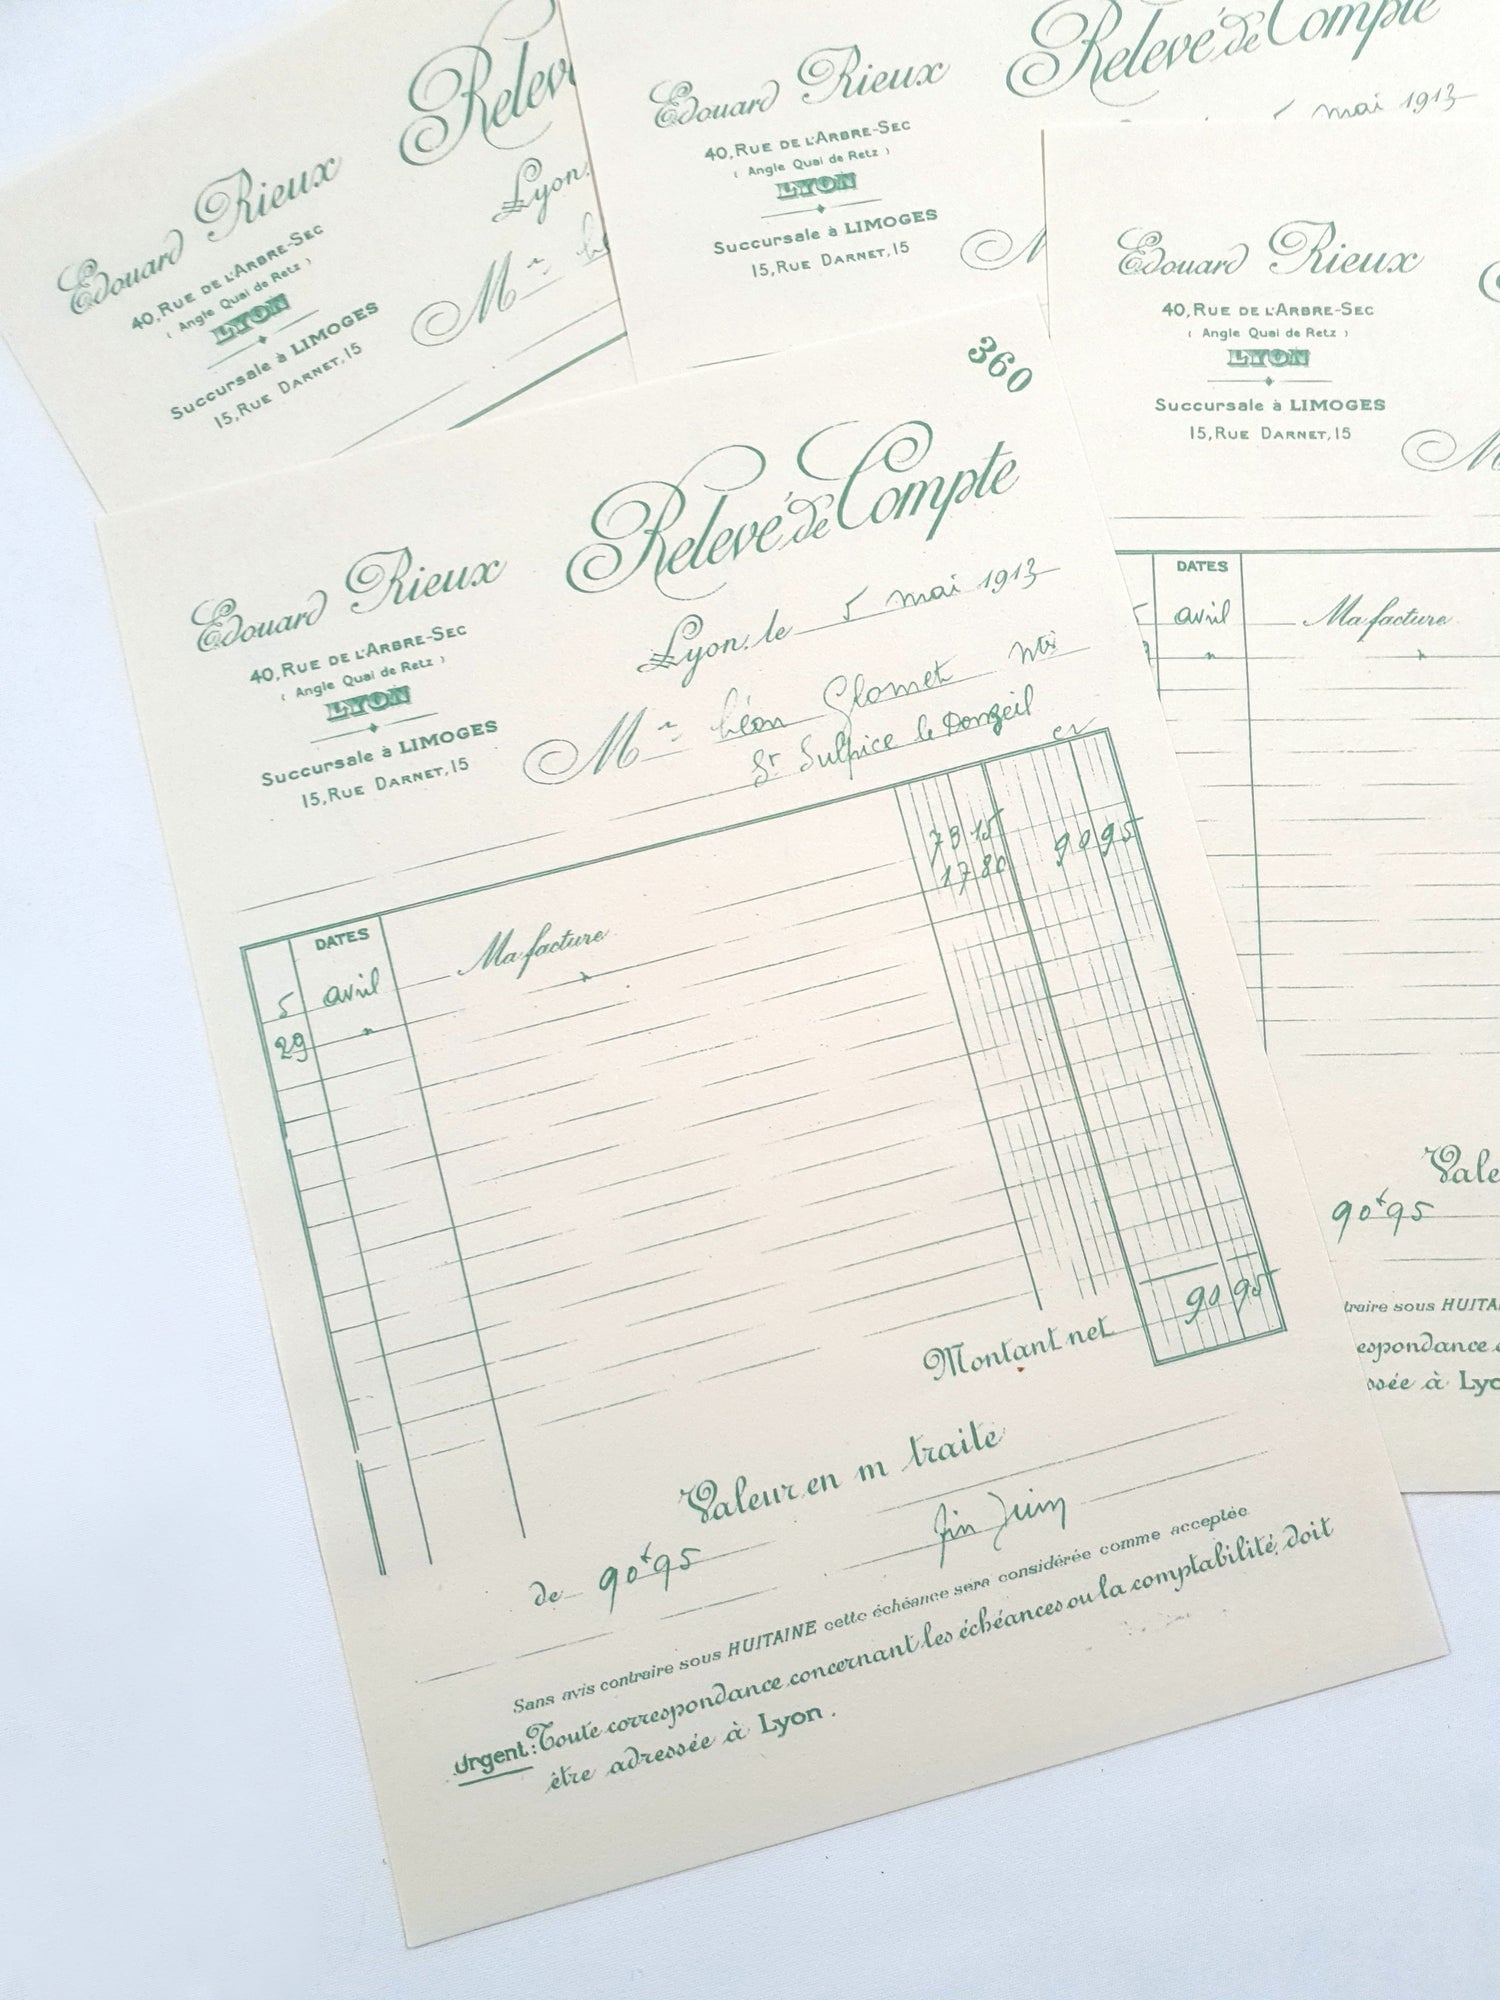 Relevé
Edouard Rieux
40, RUE DE L'ARBRE-SEC
( Angle Quai de Retz )
LYON
Succursale à LIMOGES
15, RUE DARNET, 15
Lyon.
Mr
Relevé de Compte
Edouard Rieux
40, RUE DE L'ARBRE-SEC
( Angle Quai de Retz )
LYON
Succursale à LIMOGES
15, RUE DARNET, 15
5 mai 1913
M
Edouard Rieux
40, RUE DE L'ARBRE-SEC
( Angle Quai de Retz )
LYON
Succursale à LIMOGES
15, RUE DARNET, 15
M
DATES
5 avril Ma facture
" "
Vale
90f95
traire sous HUITA
espondance
ssée à Lyo
360
Relevé de Compte
Edouard Rieux
40, RUE DE L'ARBRE-SEC
( Angle Quai de Retz )
LYON
Succursale à LIMOGES
15, RUE DARNET, 15
Lyon, le 5 mai 1913
Mr Léon Glomet
St Sulpice le Donzeil
DATES
5 avril Ma facture 73 15
29 " " 17 80 90 95
Montant net 90 95
Valeur en m traite
de 90f95 fin Juin
Sans avis contraire sous HUITAINE cette échéance sera considérée comme acceptée
Urgent: Toute correspondance concernant les échéances ou la comptabilité, doit
être adressée à Lyon.